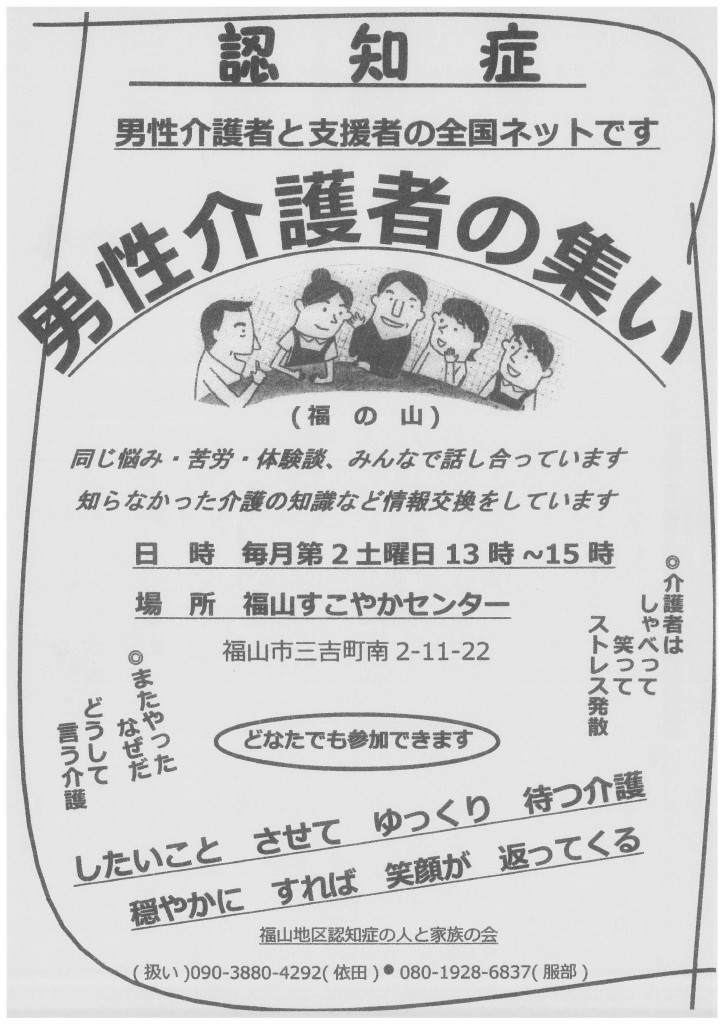 認知症
男性介護者と支援者の全国ネットです
男性介護者の集い
(福の山)
同じ悩み・苦労・体験談、みんなで話し合っています
知らなかった介護の知識など情報交換をしています
日 時 毎月第2土曜日13時~15時
場 所 福山すこやかセンター
福山市三吉町南2-11-22
◎介護者は
しゃべって
笑って
ストレス発散
◎またやった
なぜだ
どうして
言う介護
どなたでも参加できます
したいこと させて ゆっくり 待つ介護
穏やかに すれば 笑顔が 返ってくる
福山地区認知症の人と家族の会
(扱い)090-3880-4292(依田)●080-1928-6837(服部)